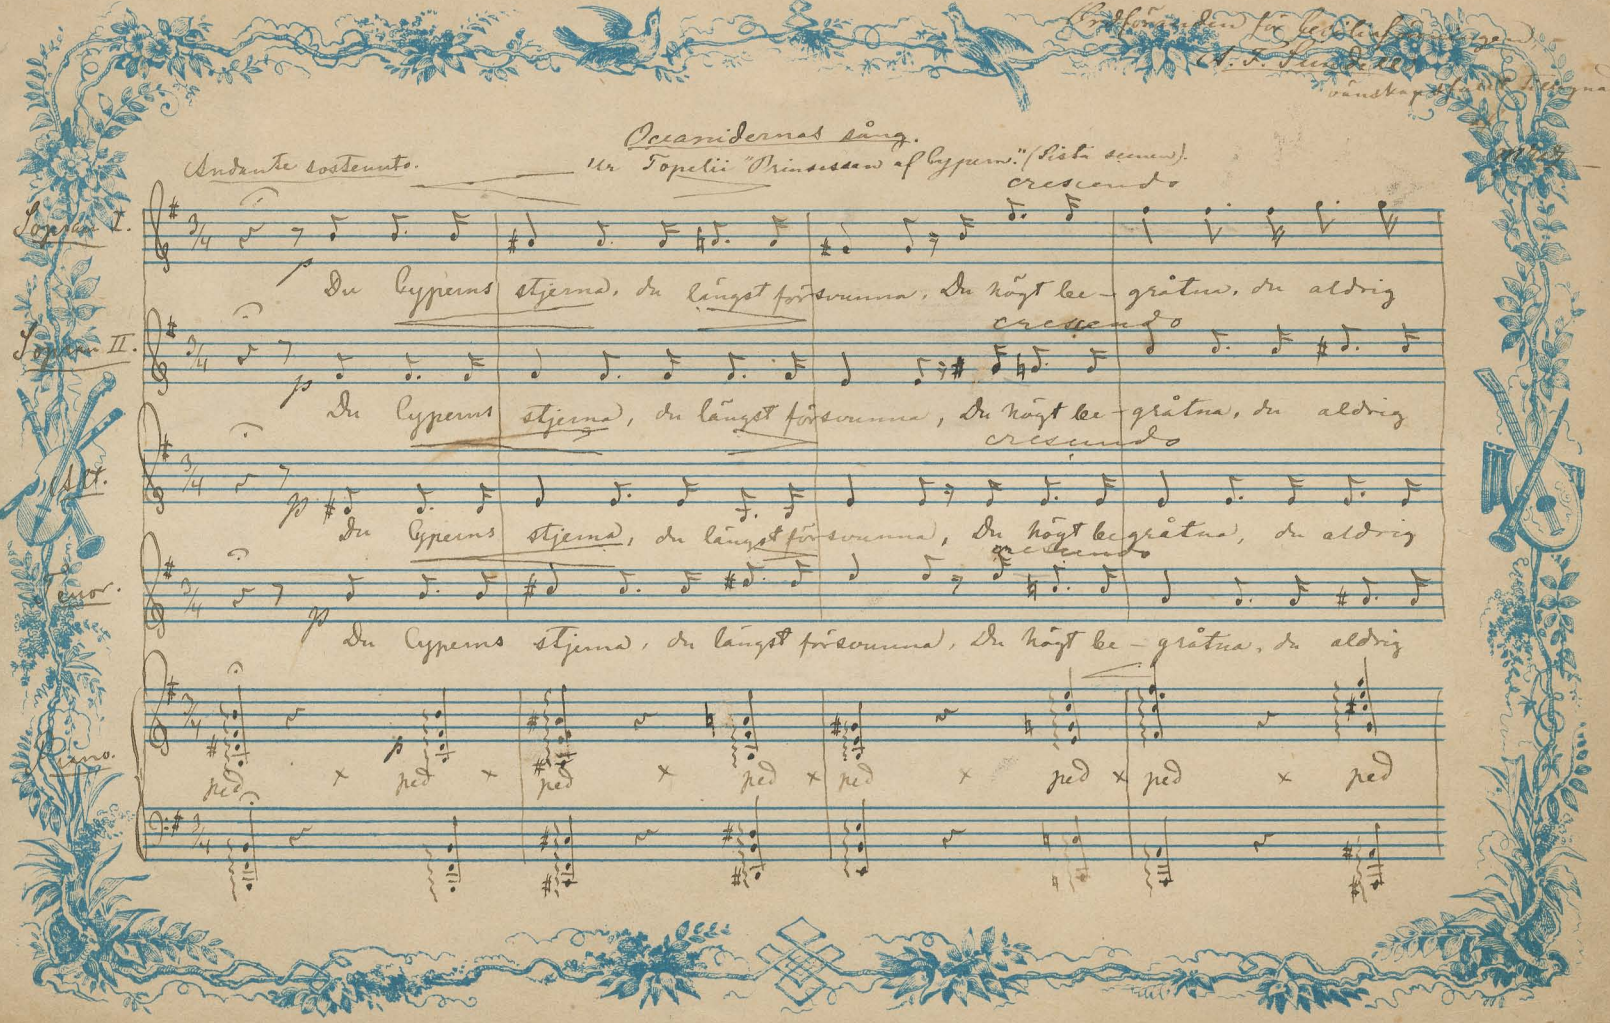 A. F. Sundell
vänskapsfullt tillegnad
af
Oceanidernas sång.
Andante sostenuto.
Ur Topelii "Prinsessan af Cypern." (Sista scenen).
crescendo
Sopran I.
3/4
p
Du Cyperns stjerna, du längst försvunna, Du högt be - gråtna, du aldrig
crescendo
Sopran II.
3/4
p
Du Cyperns stjerna, du längst försvunna, Du högt be - gråtna, du aldrig
crescendo
Alt.
3/4
p
Du Cyperns stjerna, du längst försvunna, Du högt begråtna, du aldrig
crescendo
Tenor.
3/4
p
Du Cyperns stjerna, du längst försvunna, Du högt be - gråtna, du aldrig
3/4
p
Piano.
ped x ped x ped x ped x ped x ped x ped x ped
3/4